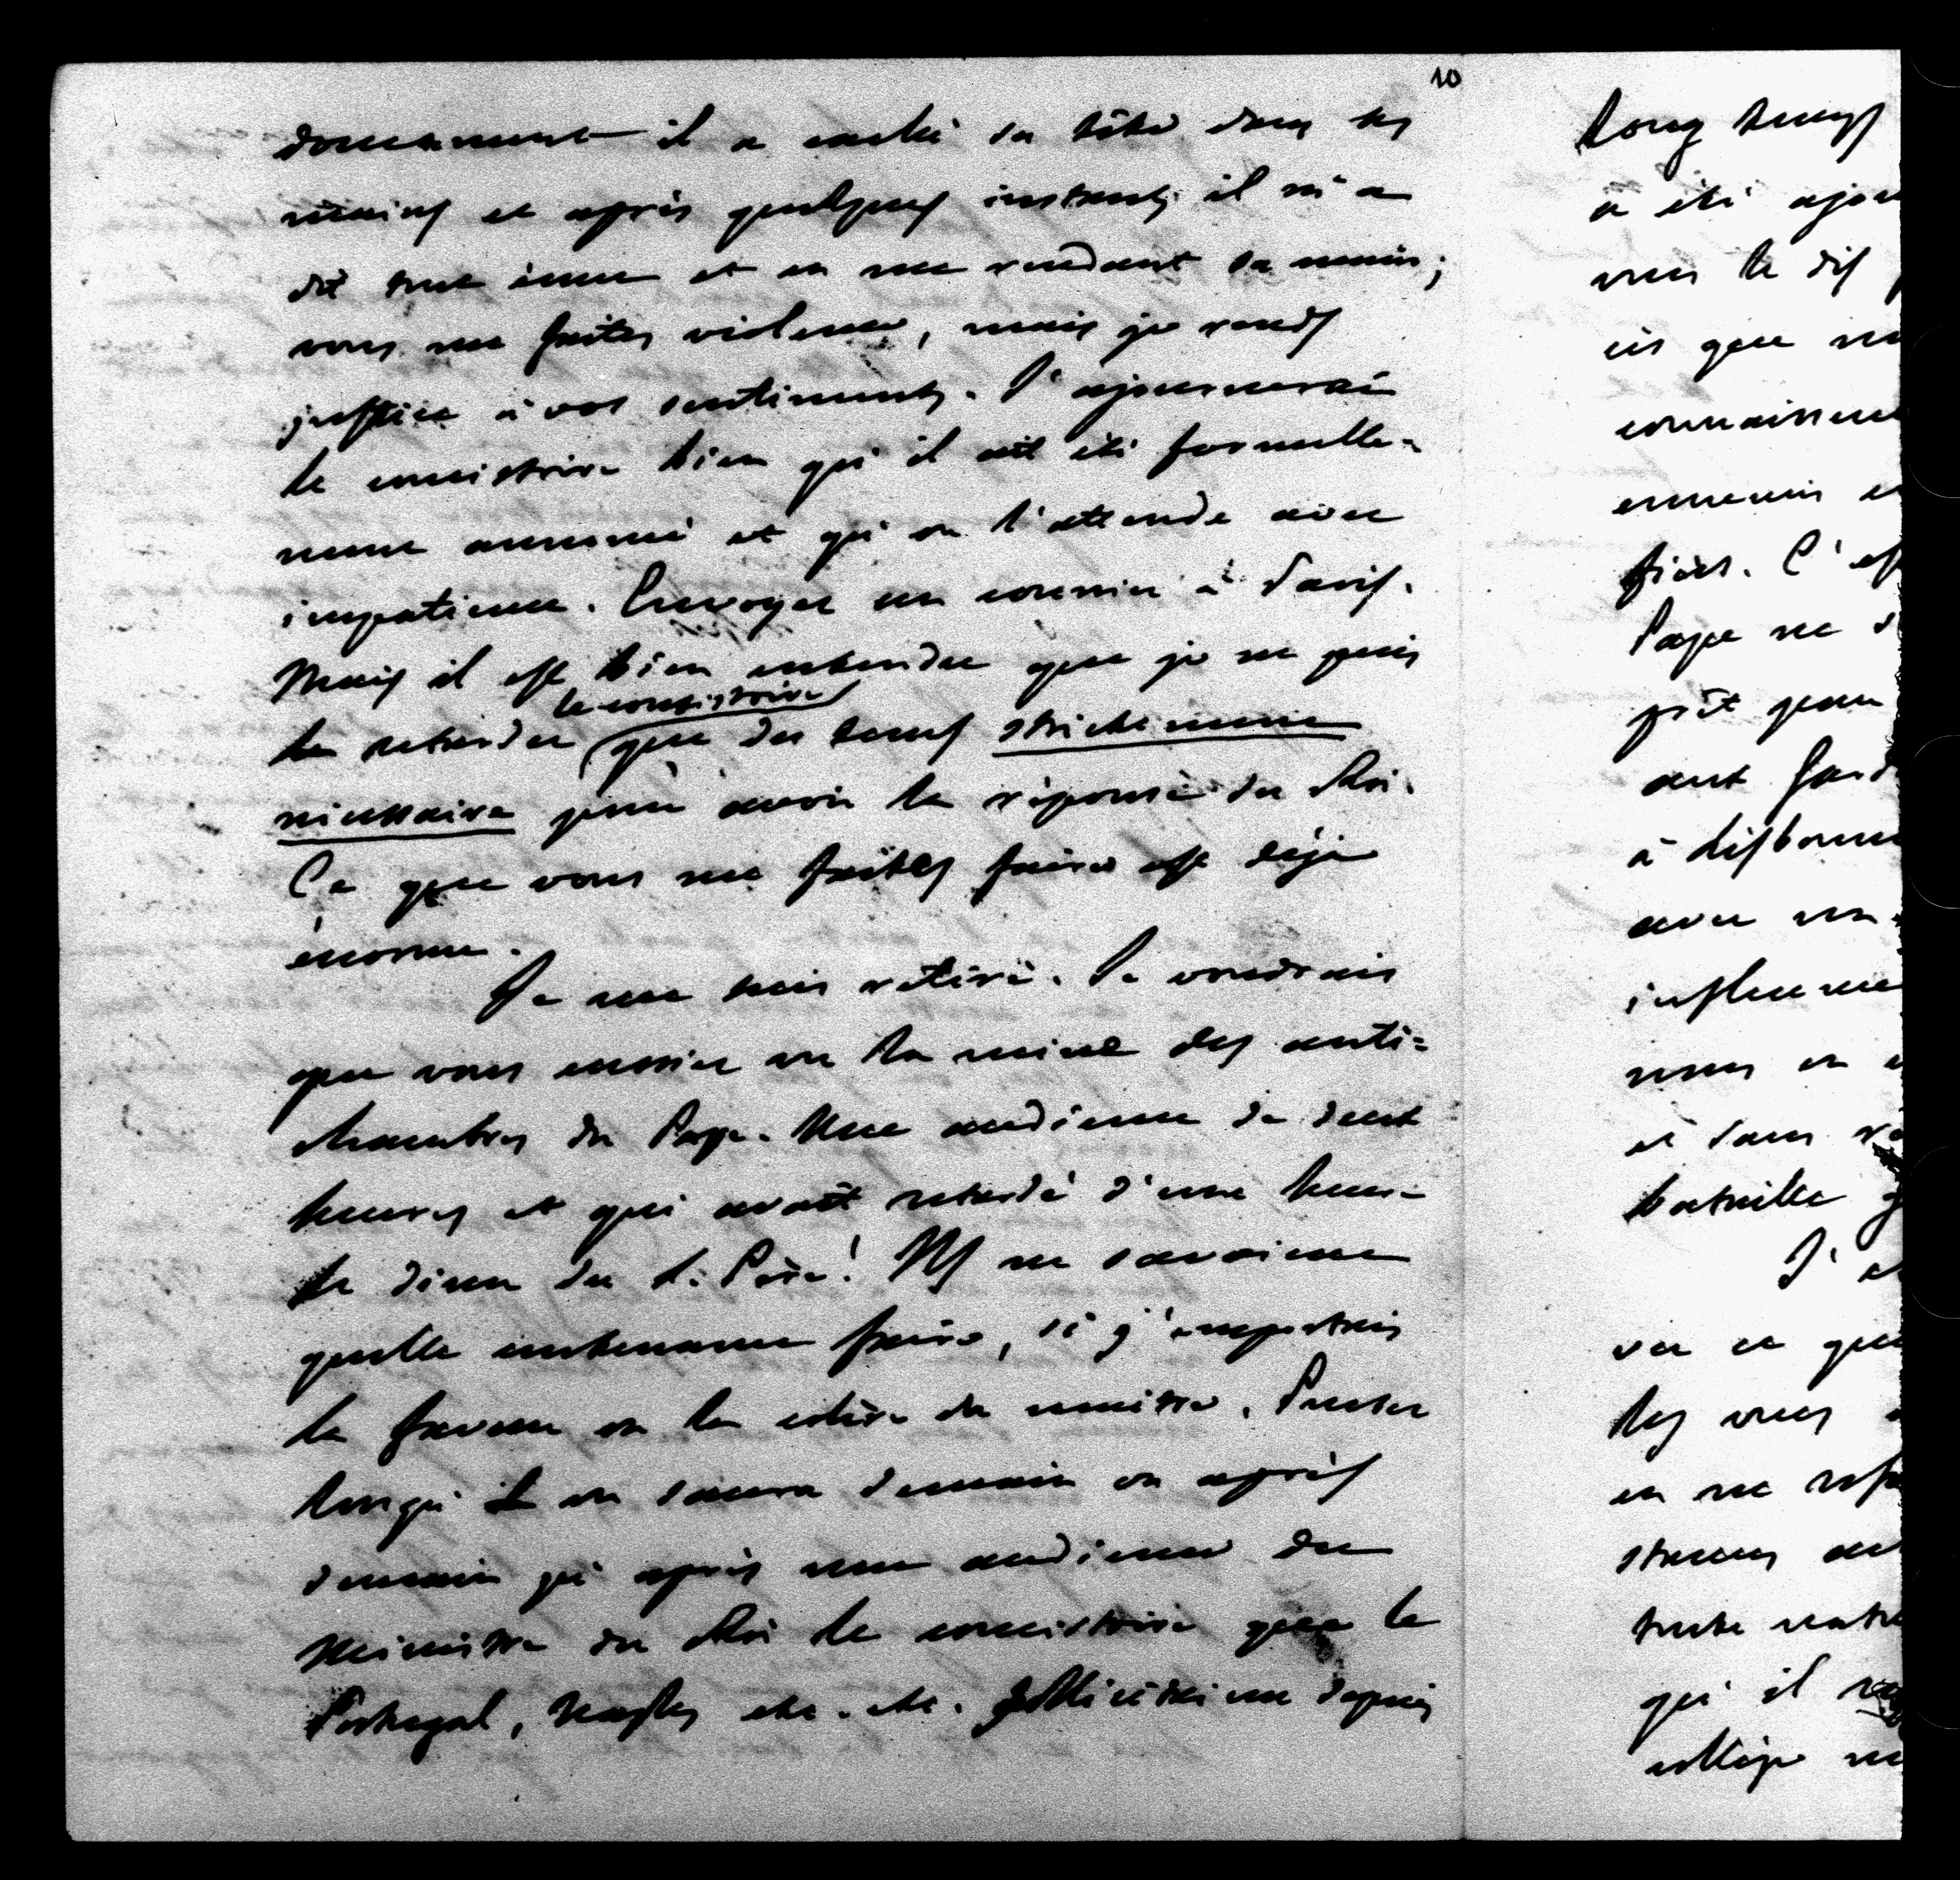 10
doucement il a caché sa tête dans ses
mains et après quelques instants il m'a
dit tout ému et en me rendant sa main;
vous me faites violence, mais je rends
justice à vos sentiments. J'ajournerai
le consistoire bien qu'il ait été formelle-
ment annoncé et qu'on l'attende avec
impatience. Envoyez un courrier à Paris.
Mais il est bien entendu que je ne puis
le consistoire
le retarder que du temps strictement
nécessaire pour avoir la réponse du Roi.
Ce que vous me faites faire est déjà
énorme.
Je me suis retiré. Je voudrais
que vous eussiez vu la mine des anti-
chambres du Pape. Une audience de deux
heures et qui avait retardé d'une heure
le diner du S. Père! Ils ne savaient
quelle contenance faire, si j'emportais
la faveur ou la colère du maitre. Pensez
lorsqu'on saura demain ou après
demain qu'après une audience du
Ministre du Roi le consistoire que le
Portugal, Naples etc. etc. sollicitaient depuis
long temps
a été ajou
vous le dis
ces que
ennemis
fiers. C'est
Pape ne s
prit pour
ont fait
à Lisbonne
avec un
influence
nous en
et sans
bataille
J'
vu ce que
les vues
en me
toute notre
qu'il